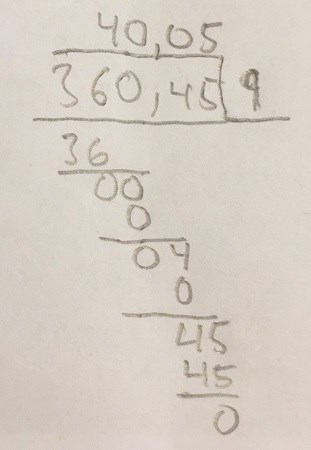 40,05
360,45 9
36
00
0
04
0
45
45
0